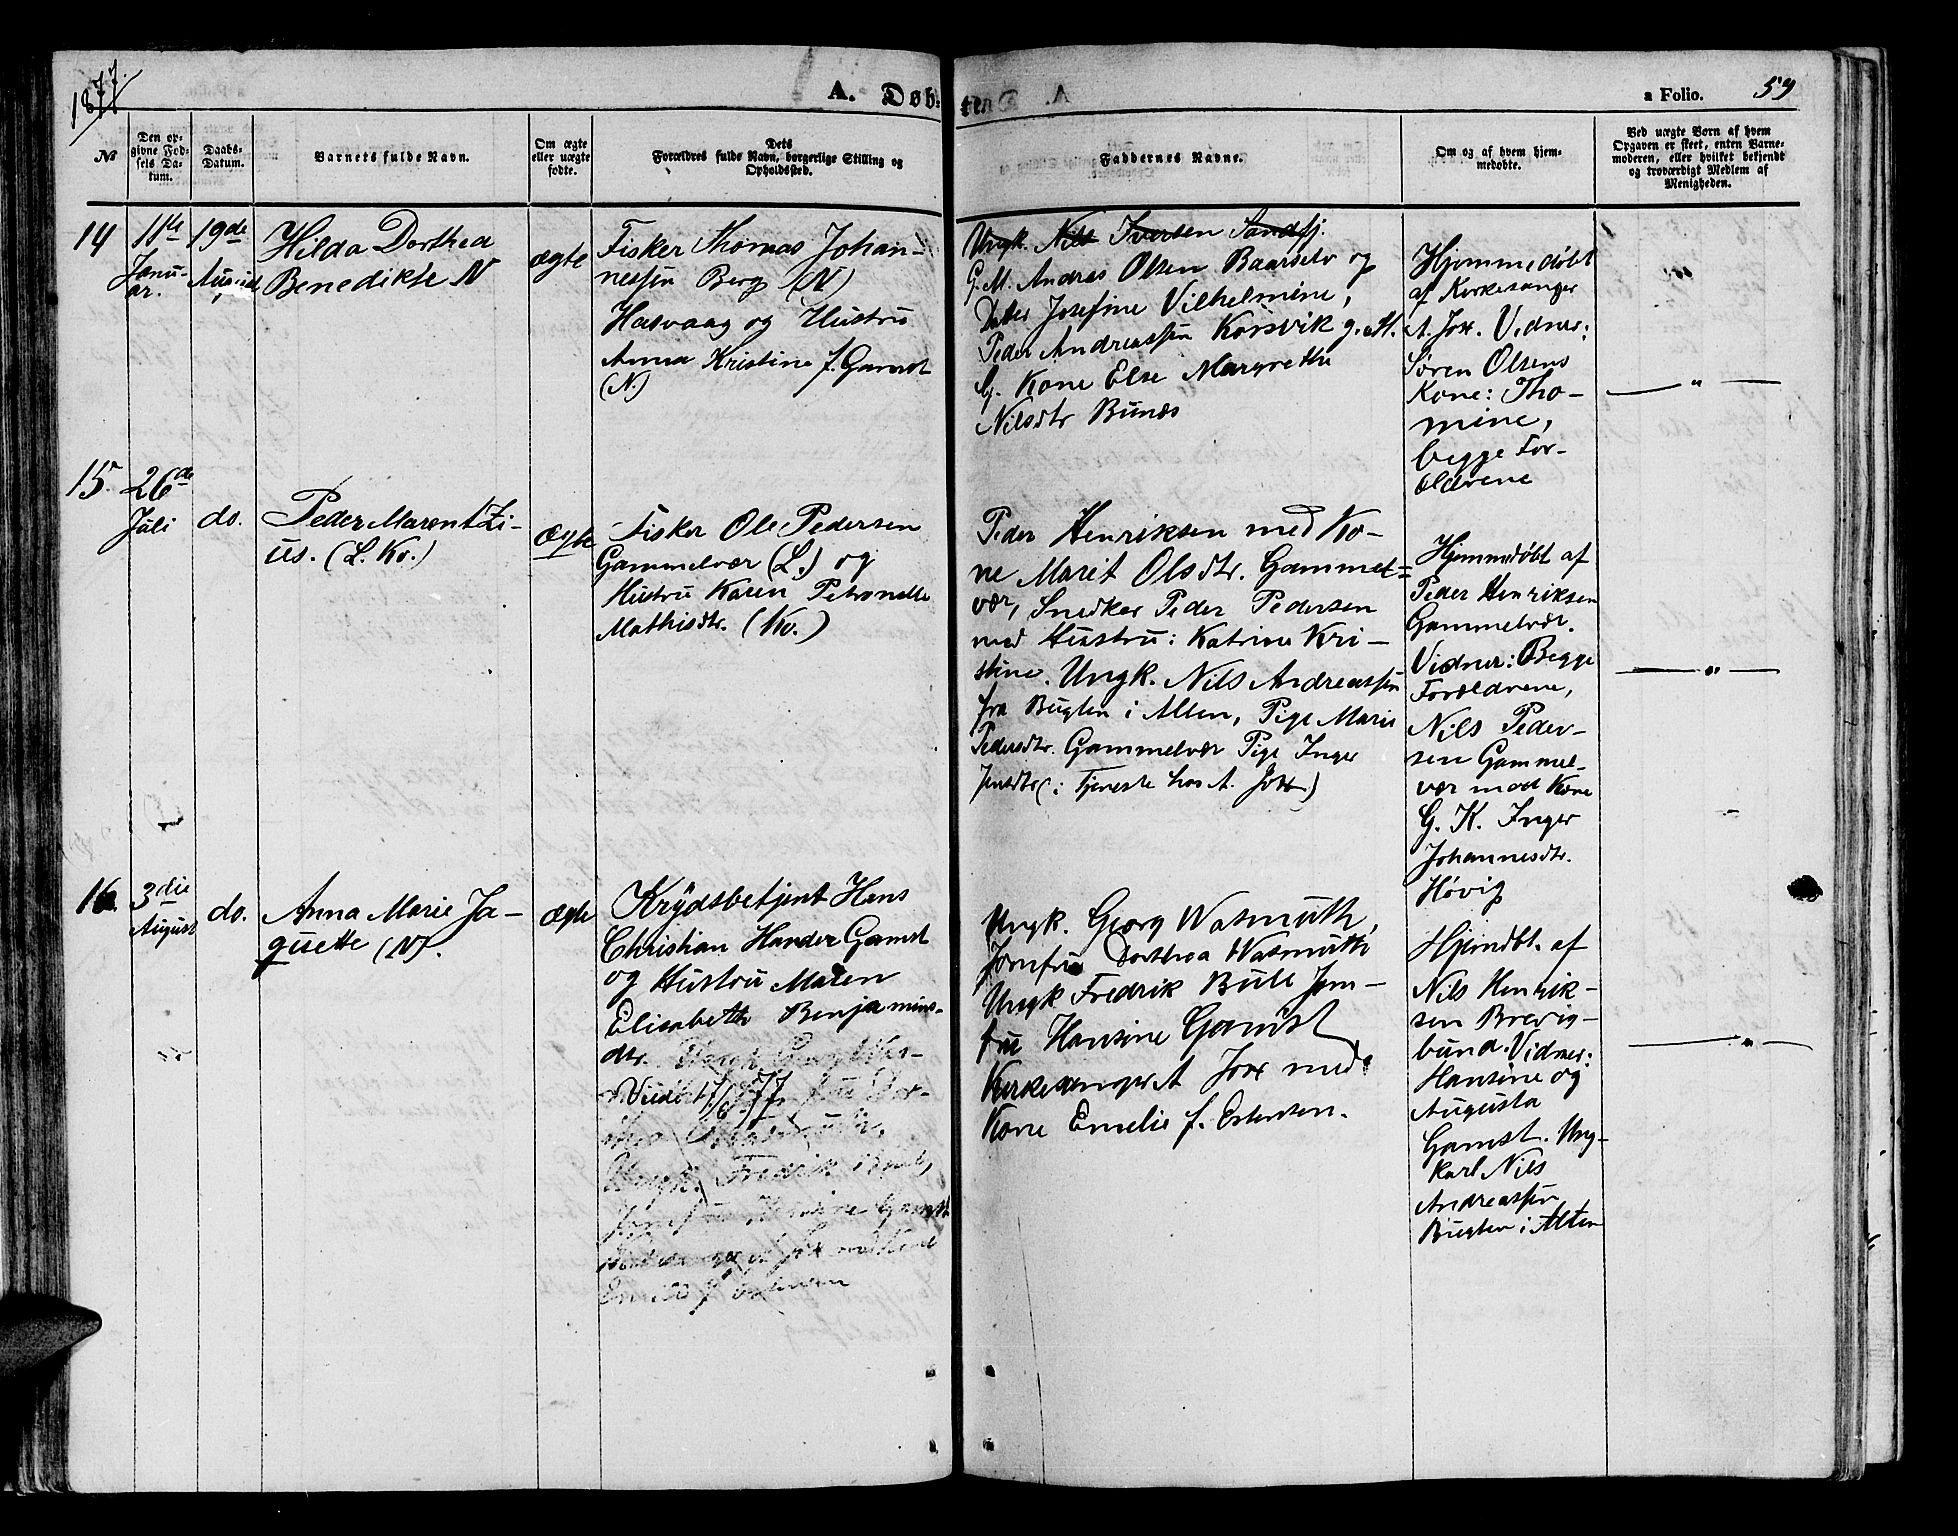 1877.
A. Døb-
te.
a Folio. 59
№
Den op-
givne Fød-
sels Da-
tum.
Daabs-
Datum.
Barnets fulde Navn.
Om ægte
eller uægte
fødte.
Dets
Forældres fulde Navn, borgerlige Stilling og
Opholdssted.
Faddernes Navne.
Om og af hvem hjem-
medøbte.
Ved uægte Børn af hvem
Opgaven er skeet, enten Barne-
moderen, eller hvilket bekjendt
og troværdigt Medlem af
Menigheden.
14
11te
Janu-
ar.
19de
August
Hilda Dorthea
Benedikte N
ægte
Fisker Thomas Johan-
nessen Berg (N)
Hasvaag og Hustru
Anna Kristine f. Gamst
(N.)
Ungk. Nils Iversen Sandfj.
G. M. Andras Olsen Baarselv og
Datter Josefine Vilhelmine,
Peder Andreassen Korsvik g. M.
G. Kone Else Margrethe
Nilsdtr Bunæs
Hjemmedøbt
af Kirkesanger
A. Jox. Vidner:
Søren Olsens
Kone: Tho-
mine,
begge For-
ældrene
— " —
15.
26de
Juli
do.
Peder Marentzi-
us. (L. Kv.)
Ægte
Fisker Ole Pedersen
Gammelvær (L.) og
Hustru Karen Petronelle
Mathisdtr. (Kv.)
Peder Henriksen med Ko-
ne Marit Olsdtr. Gammel=
vær, Snedker Peder Pedersen
med Hustru: Katrine Kri-
stine. Ungk. Nils Andreassen
fra Bugten i Alten, Pige Marie
Pedersdtr. Gammelvær Pige Inger
Jensdtr (i Tjeneste hos A. Jox)
Hjemmedøbt af
Peder Henriksen
Gammelvær.
Vidner: Begge
Forældrene,
Nils Peder-
sen Gammel-
vær med Kone
G. K. Inger
Johannesdtr.
Høvig
— " —
16.
3die
August
do.
Anna Marie Ja-
gusette (N).
Ægte
Krydsbetjent Hans
Christian Hander Gamst
og Hustru Maren
Elisabeth Benjamins-
dtr.
Fredrik
Ungk. Georg Wasmuth,
Jomfru Dorthea Wasmuth
Ungk Fredrik Bull Jom-
fru Hansine Gamst
Kirkesanger A Jox med
Kone Emelie f. Estensen.
Hjemdbt. af
Nils Henrik-
sen Brevig-
bund. Vidner:
Hansine og
Augusta
Gamst. Ung-
karl Nils
Andreassen
Bugten i Alten
— " —